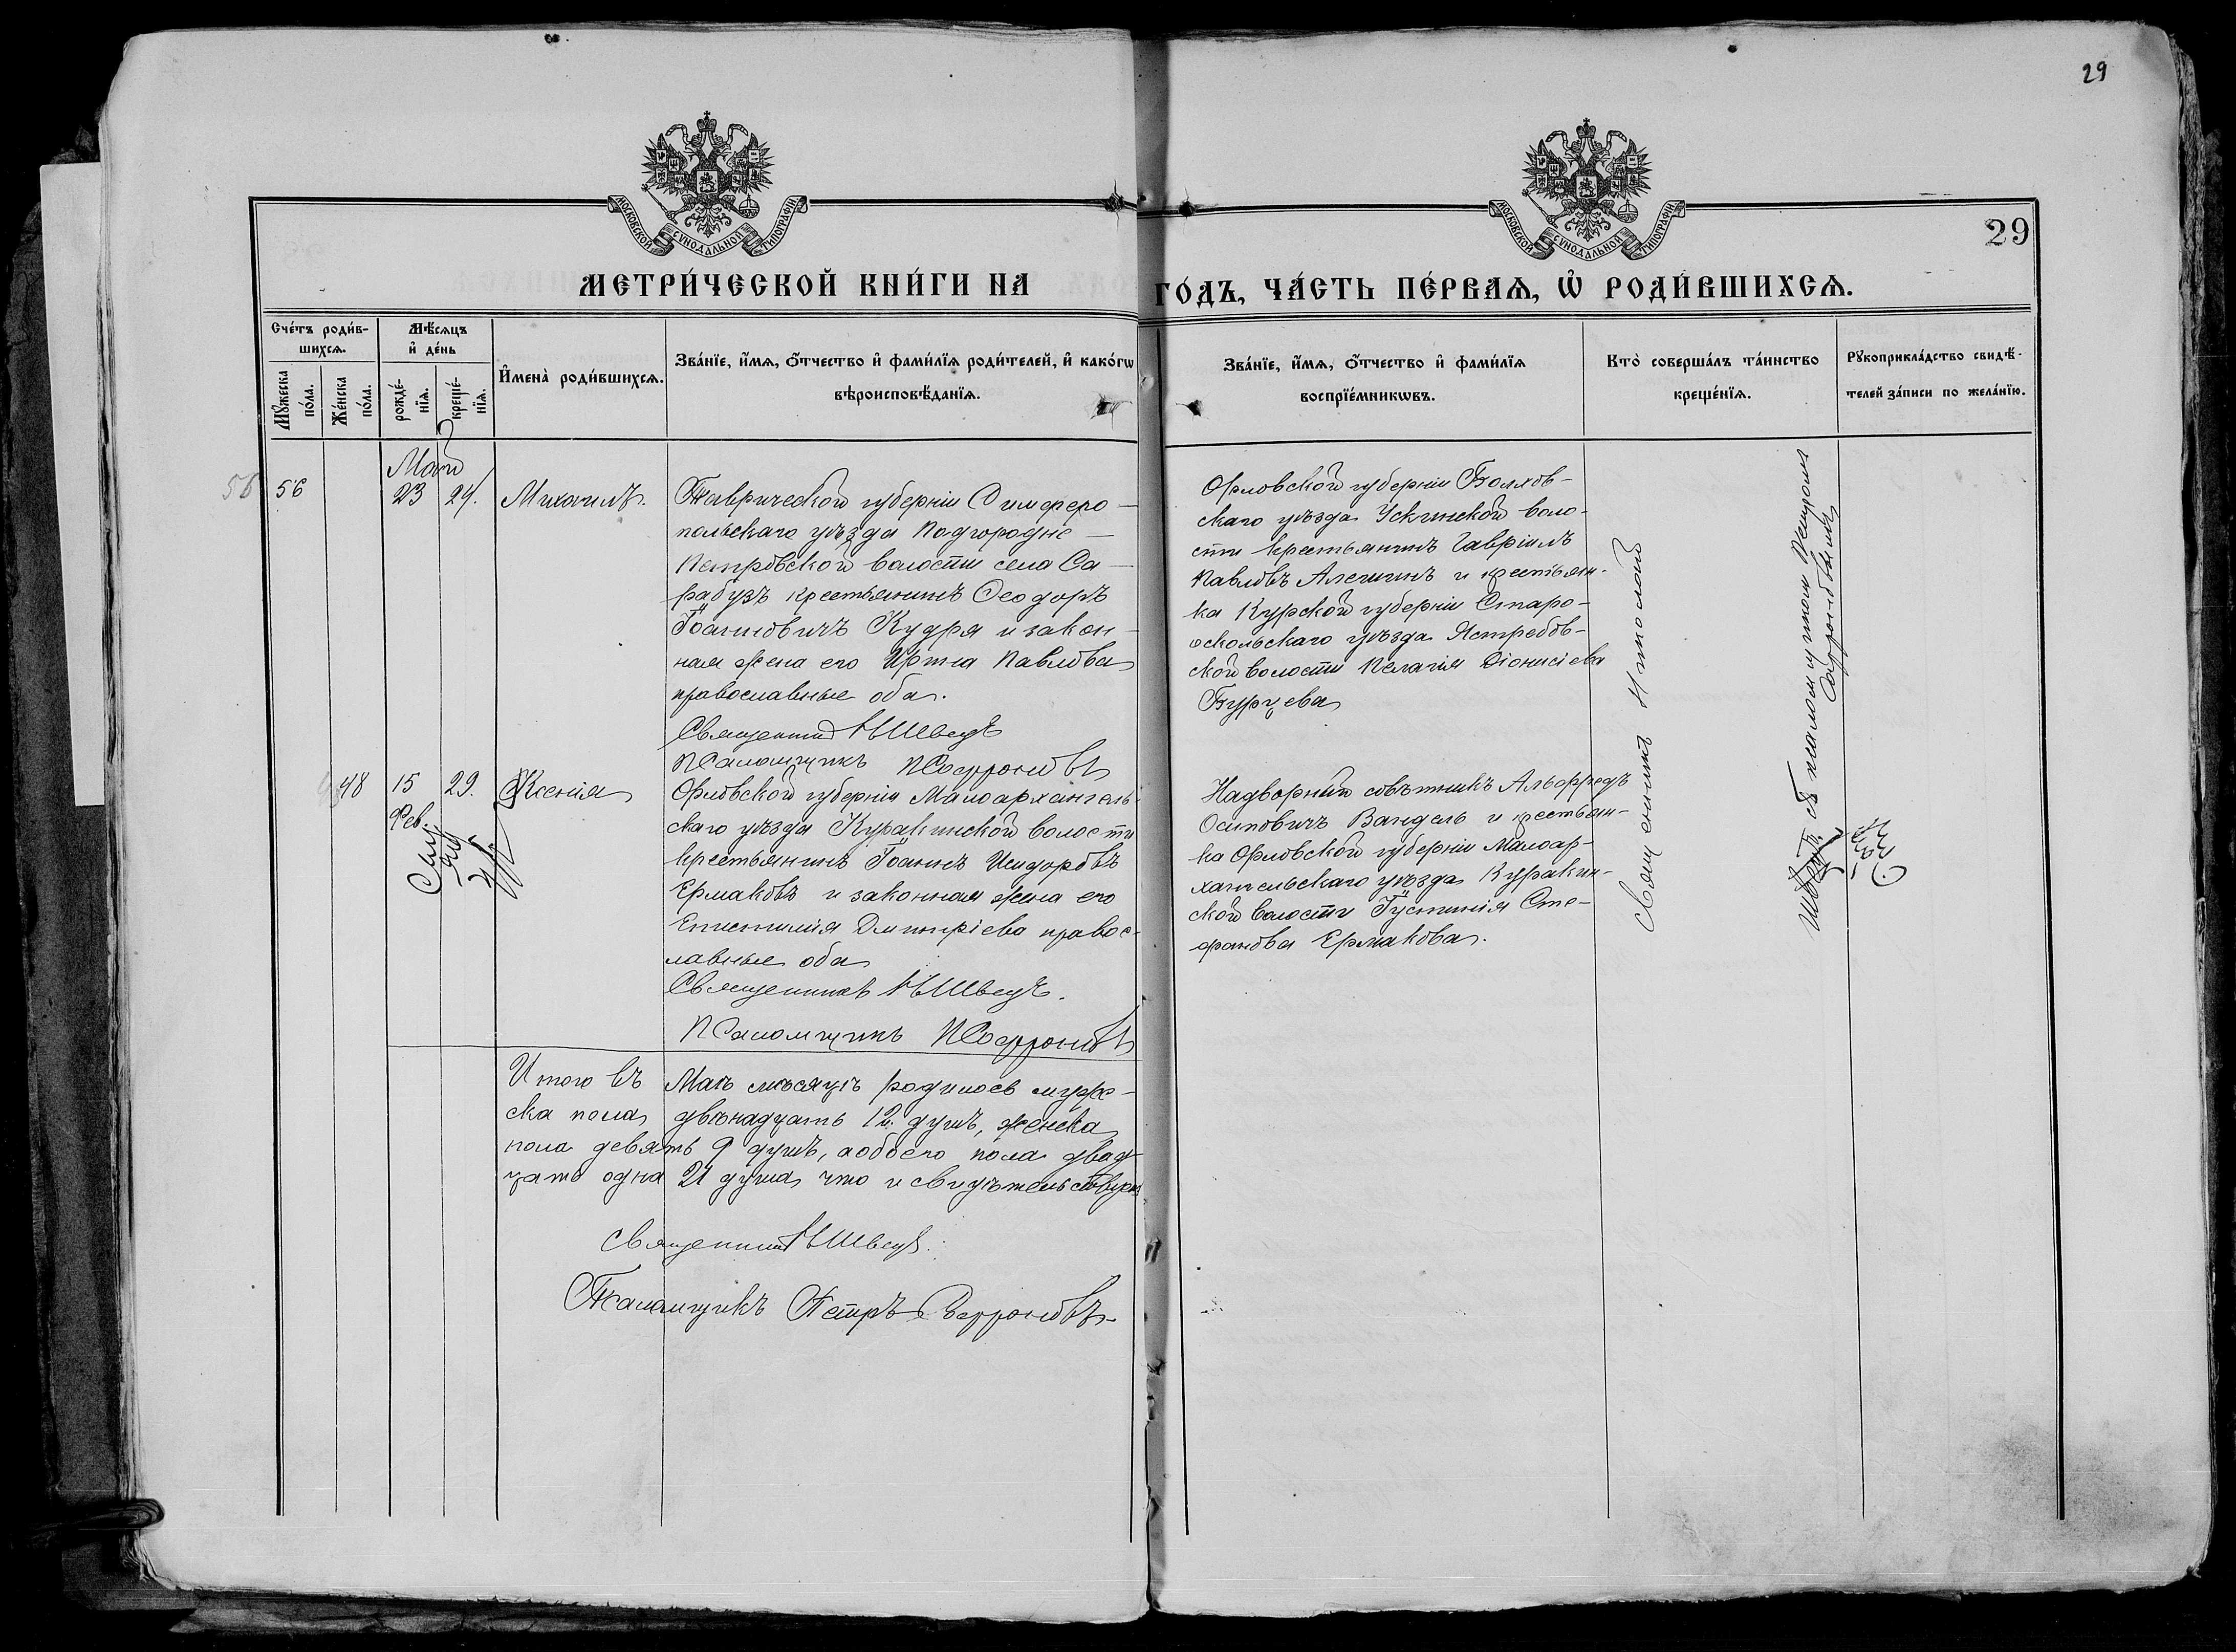 29
МОСКОВСКОЙ СѴНОДАЛЬНОЙ ТИПОГРАФІИ
МОСКОВСКОЙ СѴНОДАЛЬНОЙ ТИПОГРАФІИ
29
МЕТРИ́ЧЕСКОЙ КНИ́ГИ НА
ГО́ДЪ, ЧА́СТЬ ПЕ́РВАѦ, Ѡ҆ РОДИ́ВШИХСѦ.
Сче́тъ роди́в-
шихсѧ.
Мꙋ́жеска по́ла.
Же́нска по́ла.
Мѣ́сѧцъ
и҆ де́нь
рожде́-
нїѧ.
креще́-
нїѧ.
И҆мена̀ роди́вшихсѧ.
Зва́нїе, и҆́мѧ, ѻ҆́тчество и҆ фами́лїѧ роди́телей, и҆ како́гѡ
вѣроисповѣ́данїѧ.
Зва́нїе, и҆́мѧ, ѻ҆́тчество и҆ фами́лїѧ
воспрїе́мникѡвъ.
Кто̀ соверша́лъ та́инство
креще́нїѧ.
Рꙋкоприкла́дство свидѣ́-
телей за́писи по жела́нїю.
Май
56
23
24.
Михаилъ.
Таврической губерніи Симферо-
польскаго уѣзда Подгородне-
Петровской волости села Са-
рабузъ крестьянинъ Ѳеодоръ
Іоанновичъ Кудря и закон-
ная жена его Ирина Павлова
православные оба.
Священникъ Н Швецъ
Псаломщикъ П Софроновъ
Орловской губерніи Болхов-
скаго уѣзда
воло-
сти крестьянинъ Гавріилъ
Павловъ Алешинъ и крестьян-
ка Курской губерніи Старо-
оскольскаго уѣзда Ястребов-
ской волости Пелагія Діонисіева
Бурцева
48
15
29.
Ксенія
Фев.
Орловской губерніи Малоархангель-
скаго уѣзда Куракинской волости
крестьянинъ Іоаннъ Исидоровъ
Ермаковъ и законная жена его
Епистимія Димитріева правос-
лавные оба
Священникъ Н Швецъ.
Псаломщикъ П Софроновъ
Надворный совѣтникъ Альфредъ
Осиповичъ Вандель и крестьян-
ка Орловской губерніи Малоар-
хангельскаго уѣзда Куракин-
ской волости Іустинія Сте-
фанова Ермакова.
Священникъ Николай
Швецъ съ псаломщикомъ Петромъ
Софроновымъ
Итого въ Маѣ мѣсяцѣ родилось муже-
ска пола двѣнадцать 12 душъ, женска
пола девять 9 душъ, а обоего пола двад-
цать одна 21 душа, что и свидѣтельствуемъ
Священникъ Н Швецъ.
Псаломщикъ Петръ Софроновъ